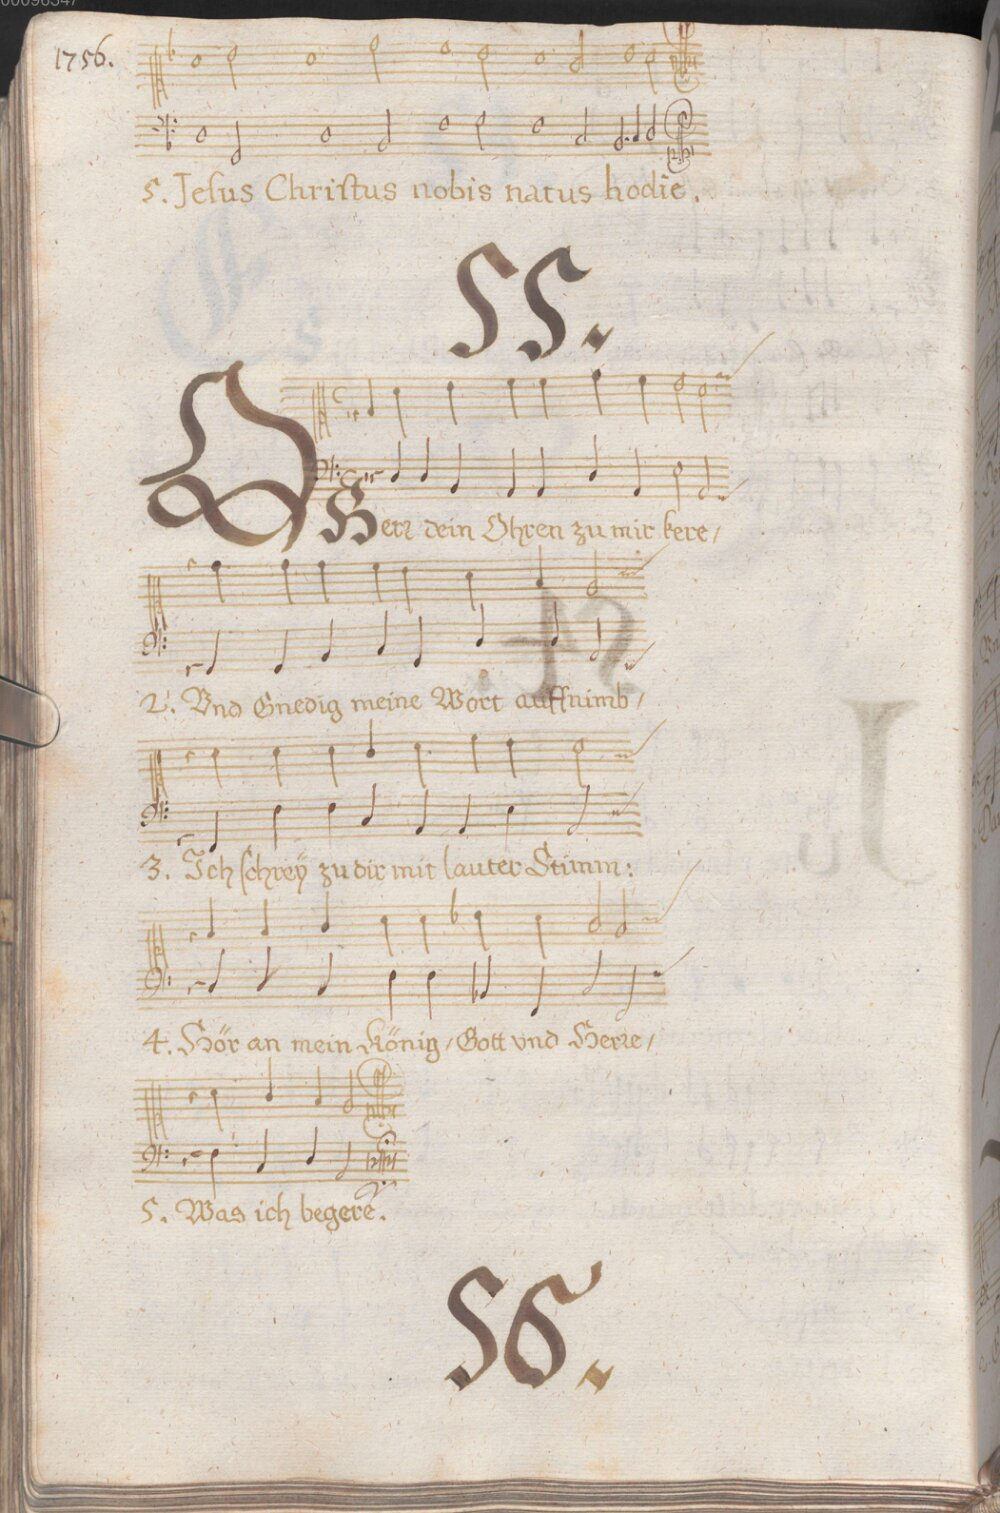 00096347
1756.
5. Jeſus Chriſtus nobis natus hodie.
55.
O Herr dein Ohren zu mir kere/
2. Vnd Gnedig meine Wort auffnimb/
3. Ich ſchrey zu dir mit lauter Stimm:
4. Hör an mein König/ Gott vnd Herre/
5. Was ich begere.
56.